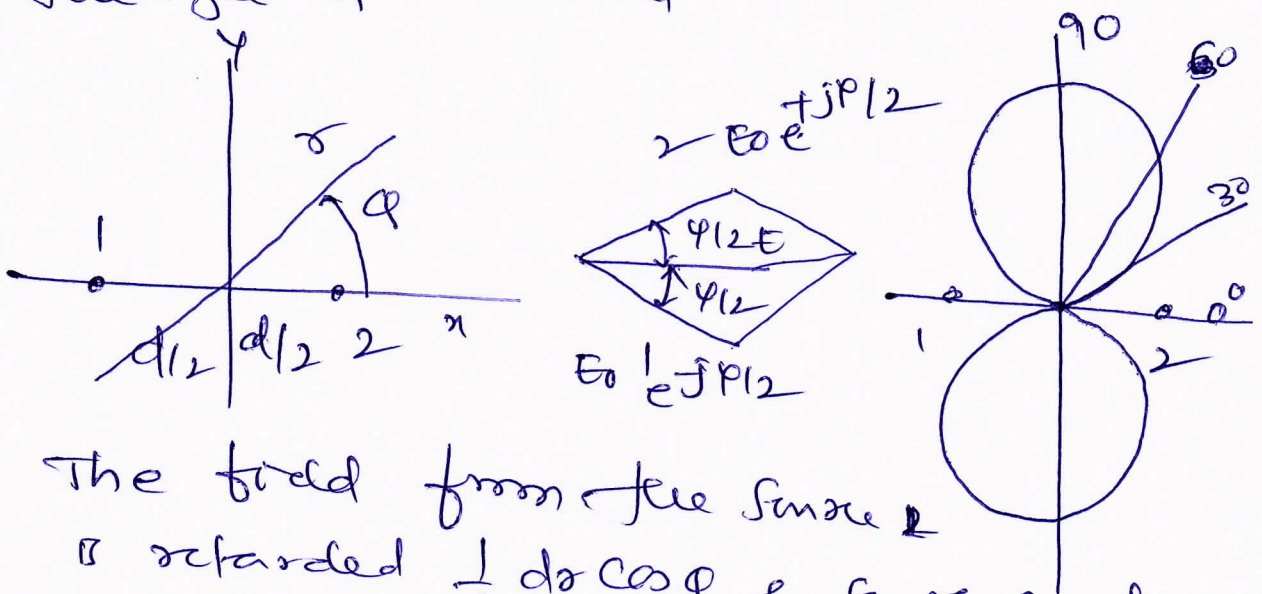 Y
r
φ
1
d/2 d/2 2 x
2 E0 e+jψ/2
ψ/2 E
ψ/2
E0 1 e-jψ/2
90
60
30
0°
1 2
The field from the source 1
is retarded 1 dr cos φ